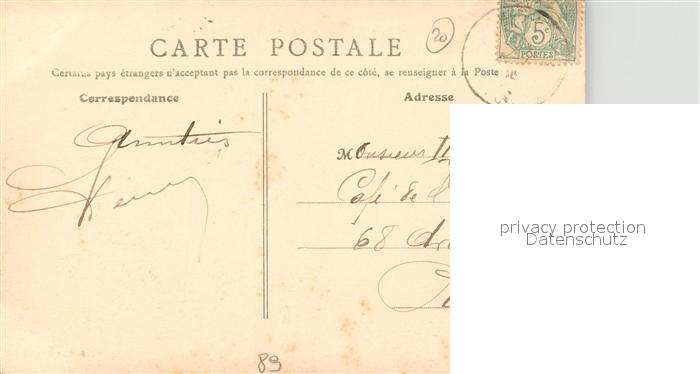 20
CARTE POSTALE
5c
POSTES
Certains pays étrangers n'acceptant pas la correspondance de ce côté, se renseigner à la Poste
Correspondance
Adresse
Amitiés
Monsieur
Café de
68
privacy protection
Datenschutz
89